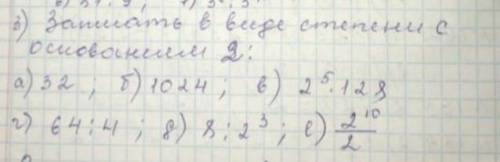 3) Записать в виде степени с
основанием 2:
а) 32 ; б) 1024 ; в) 2⁵·128
г) 64:4 ; д) 8:2³ ; е) 2¹⁰/2